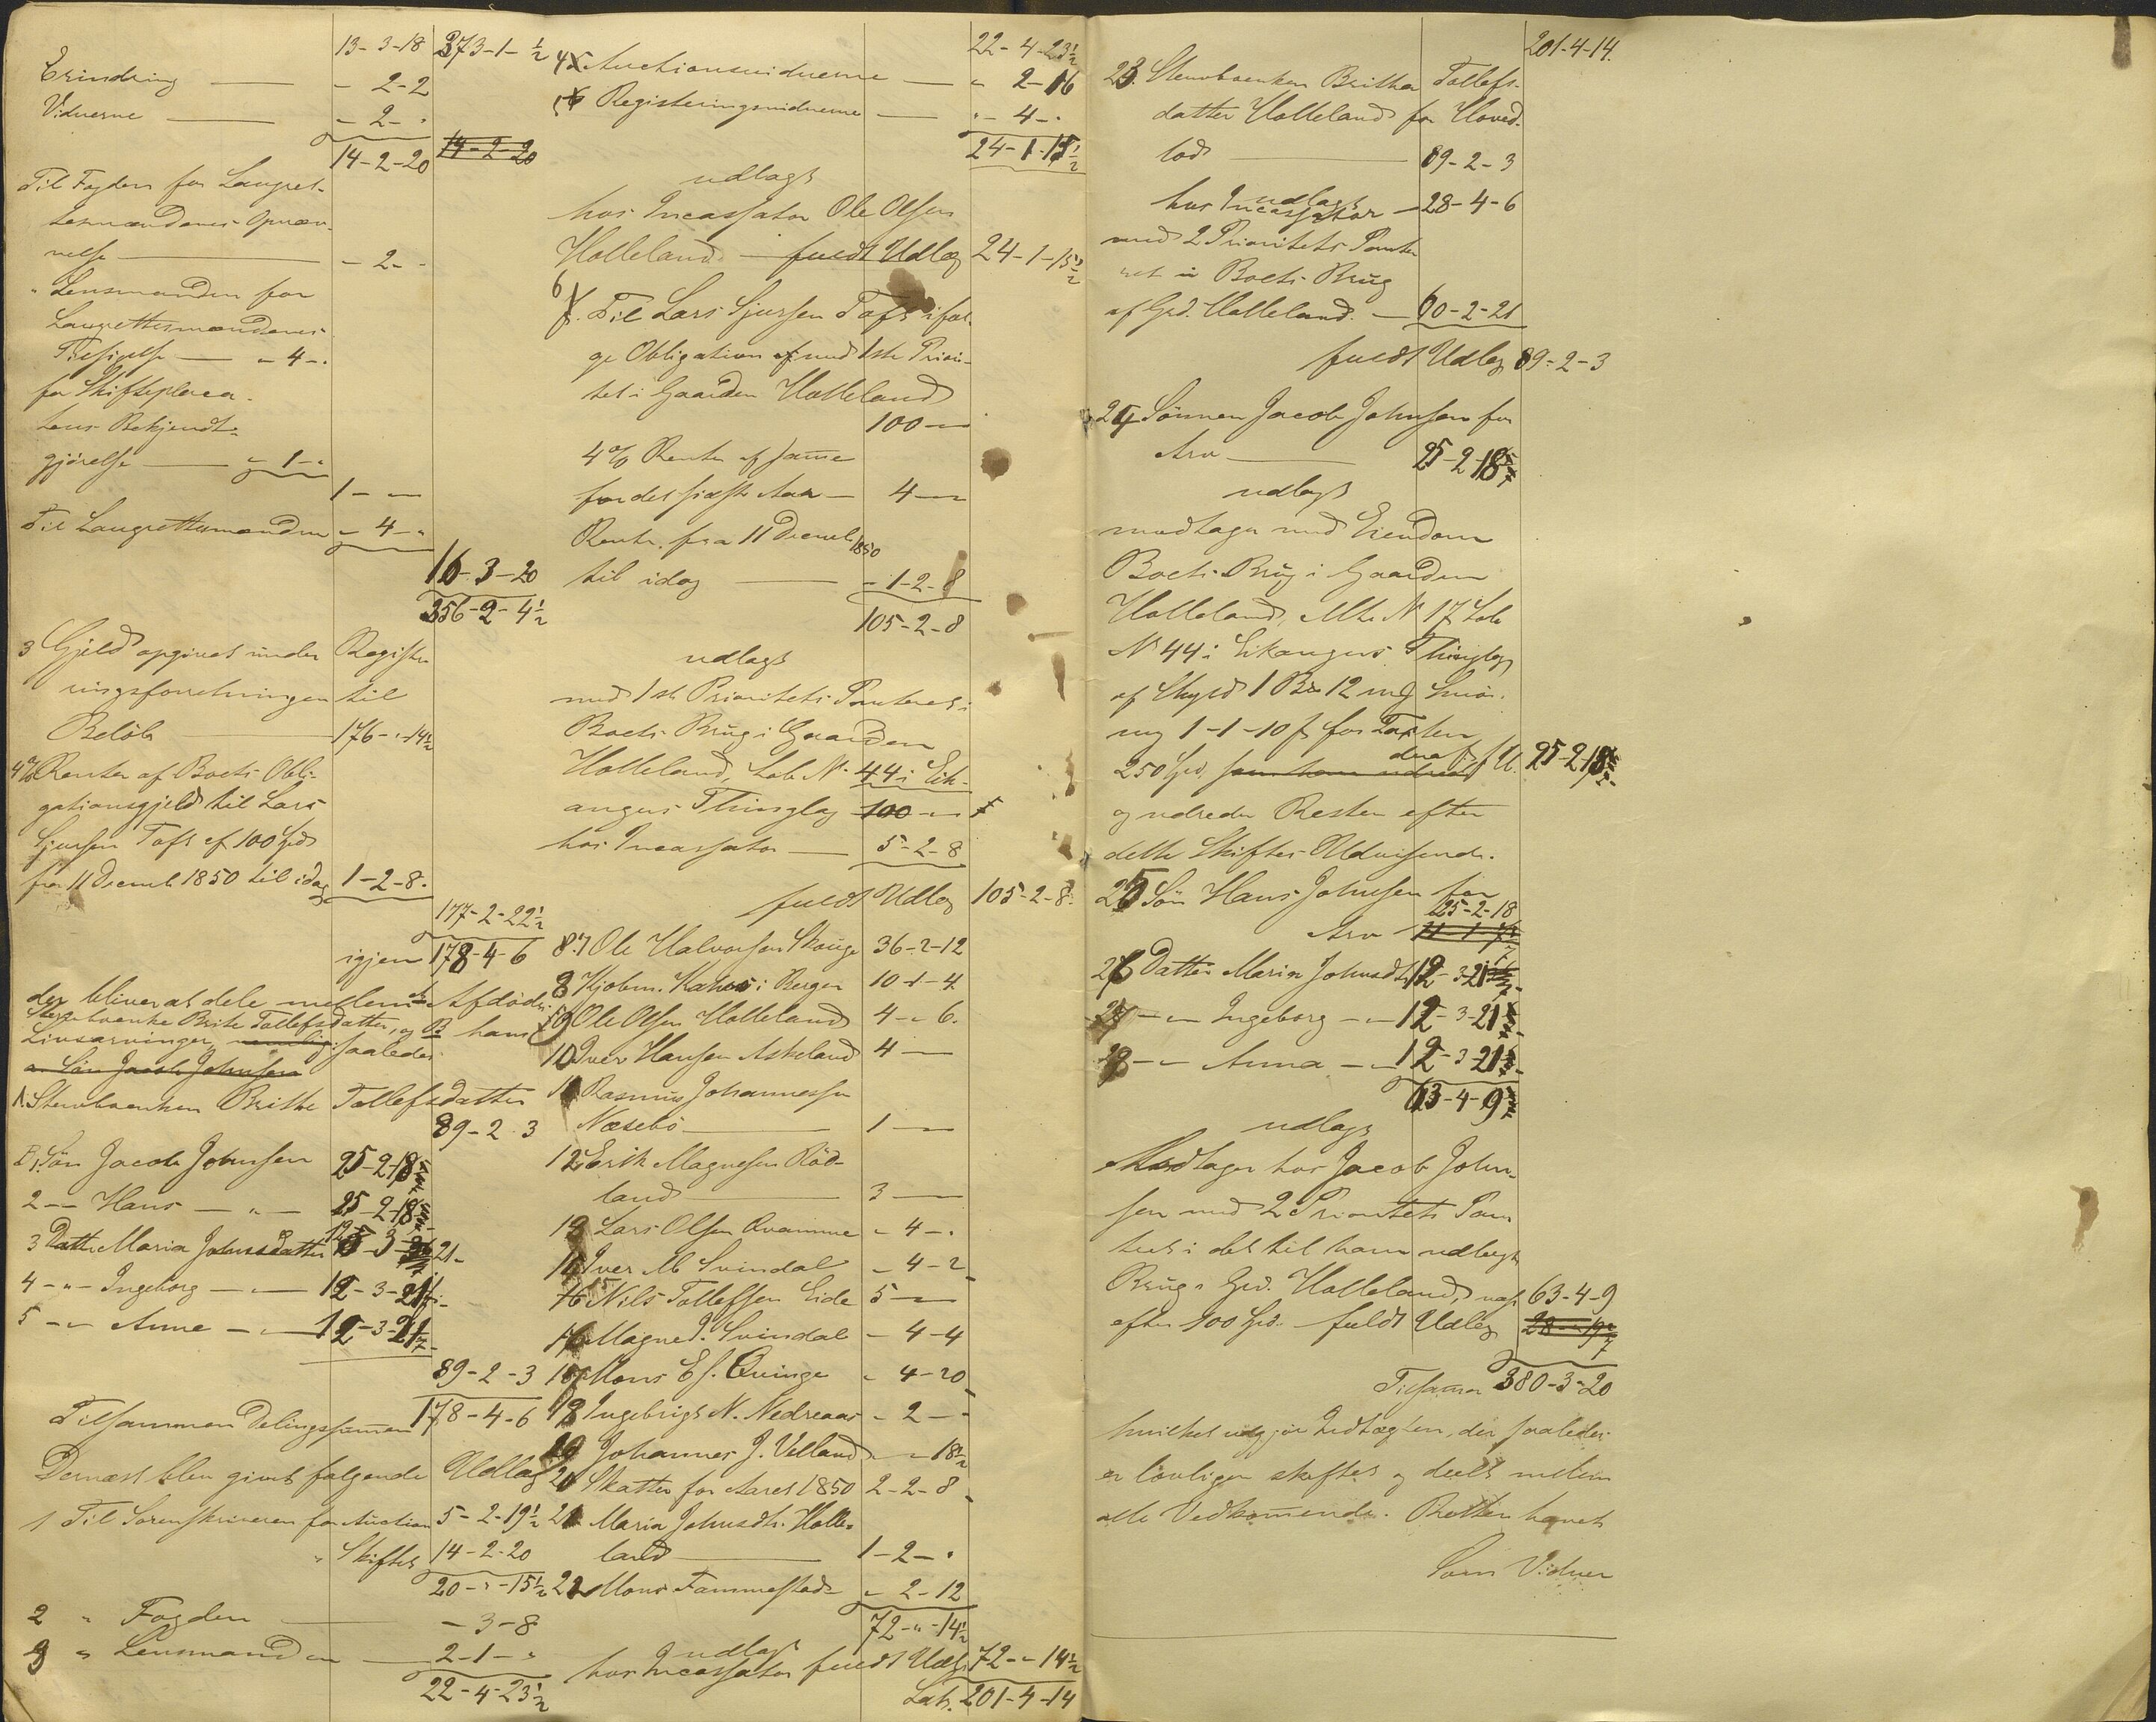 13-3-18 373-1-½
Erindring - 2-2
Vidnerne - 2-"
14-2-20 14-2-20
Til Fogden for Laugret-
tesmændenes Opnæv-
nelse - 2--
" Lensmanden for
Laugrettesmændenes
Tilsigelse - 4-"
for Skifteplaca-
tens Bekjendt-
gjørelse - 1-"
1-"-"
Til Laugrettesmændene - 4-"
16-3-20
356-2-4½
3 Gjeld opgivet under Registe-
ringsforretningen til
Beløb 176-"-14½
4% Renter af Boets Obli-
gationsgjeld til Lars
Sjursen Toft af 100 Spd
fra 11 Decemb 1850 til idag 1-2-8.
177-2-22½
igjen 178-4-6
der bliver at dele mellem den Afdødes
Sterbenke Brite Tollefsdatter, og B hans
Livsarvinger, nemlig saaledes
a. Søn Jacob Johnsen
A. Stervboenken Brithe Tollefsdatter
89-2-3
B 1. Søn Jacob Johnsen 25-2-18
2 -"- Hans -"- 25-2-18
3 Datter Maria Johnsdatter 12-3-21
4 -"- Ingeborg -"- 12-3-21
5 -"- Anne -"- 12-3-21
89-2-3
Tilsammen Delingssummen 178-4-6
Dernæst blev givet følgende Udlæg
1 Til Sorenskriveren for Auction 5-2-19½
" Skiftet 14-2-20
20-"-15½
2 " Fogden - 3-8
3 " Lensmanden 2-1-"
22-4-23½
22-4-23½
4 Auctionsvidnerne " 2-16
5 Registeringsvidnerne "-4-"
24-1-15½
udlagt
hos Incassator Ole Olsen
Holleland fuldt Udlæg 24-1-15½
6 Til Lars Sjursen Toft iføl-
ge Obligation med 1ste Priori-
tet i Gaarden Holleland
100-"-"
4% Rente af samme
for det sidste Aar 4-"-"
Rente fra 11 Decemb 1850
til idag - 1-2-8
105-2-8
udlagt
med 1ste Prioritets Panteret i
Boets Brug i Gaarden
Holleland, Løb N. 44 i Eik-
angers Thinglag 100-"-"
hos Incassator 5-2-8
fuldt Udlæg 105-2-8.
7 Ole Halvorsen Skauge 36-2-12
8 Kjøbm. Kahrs i Bergen 10-1-4
9 Ole Olsen Holleland 4-"-6.
10 Iver Hansen Askeland 4-"-"
11 Rasmus Johannessen
Næsebø 1-"-"
12 Erik Magnesen Rød-
land 3-"-"
13 Lars Olsen Kvamme - 4-"
14 Iver M. Svindal - 4-2
15 Nils Tollefsen Eide 5-"-"
16 Magne J. Svindal - 4-4
17 Mons E s. Qvinge - 4-20
18 Ingebrigt N. Nedreaas - 2-"
19 Johannes J. Velland - "-18½
20 Skatter for Aaret 1850 2-2-8
21 Maria Johnsdtr. Holle-
land 1-2-"
22 Mons Tammestad - 2-12
72-"-14½
udlagt
hos Incassator fuldt Udlæg 72-"-14½
Lats. 201-4-14
201-4-14.
23. Stervboenken Brithe Tollefs-
datter Holleland for Hoved-
lod 89-2-3
udlagt
hos Incassator 28-4-6
med 2 Prioritets Pante-
ret i Boets Brug
af Grd. Holleland. 60-2-21
fuldt Udlæg 89-2-3
24 Sønnen Jacob Johnsen for
Arv 25-2-18
udlagt
modtager med Eiendom
Boets Brug i Gaarden
Holleland, Mte N 17 Løb
N 44 i Eikangers Thinglag
af Skyld 1 Bpd 12 mk Smør.
ny 1-1-10 ß for Taxten
250 Spd. 25-2-18
og udreder Resten efter
dette Skiftes Udvisende.
25 Søn Hans Johnsen for
25-2-18
Arv
26 Datter Maria Johnsdtr 12-3-21
27 -"- Ingeborg -"- 12-3-21
28 -"- Anna -"- 12-3-21
63-4-9
udlagt
Modtager hos Jacob John-
sen med 2 Prioritets Pan-
teret i det til ham udlagte
Brug i Grd. Holleland, næst 63-4-9
efter 100 Spd. fuldt Udlæg
Tilsammen 380-3-20
hvilket udgjør Indtægten, der saaledes
er lovligen skiftet og deelt mellem
alle Vedkommende. Retten hævet
Som Vidner